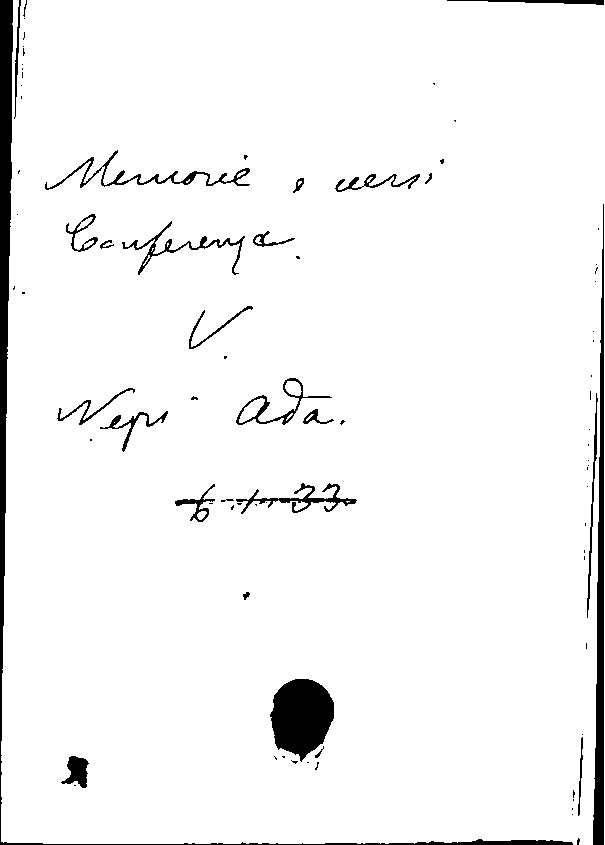 Memorie e versi
Conferenza.
V.
Nepi Ada.
6.1.33.